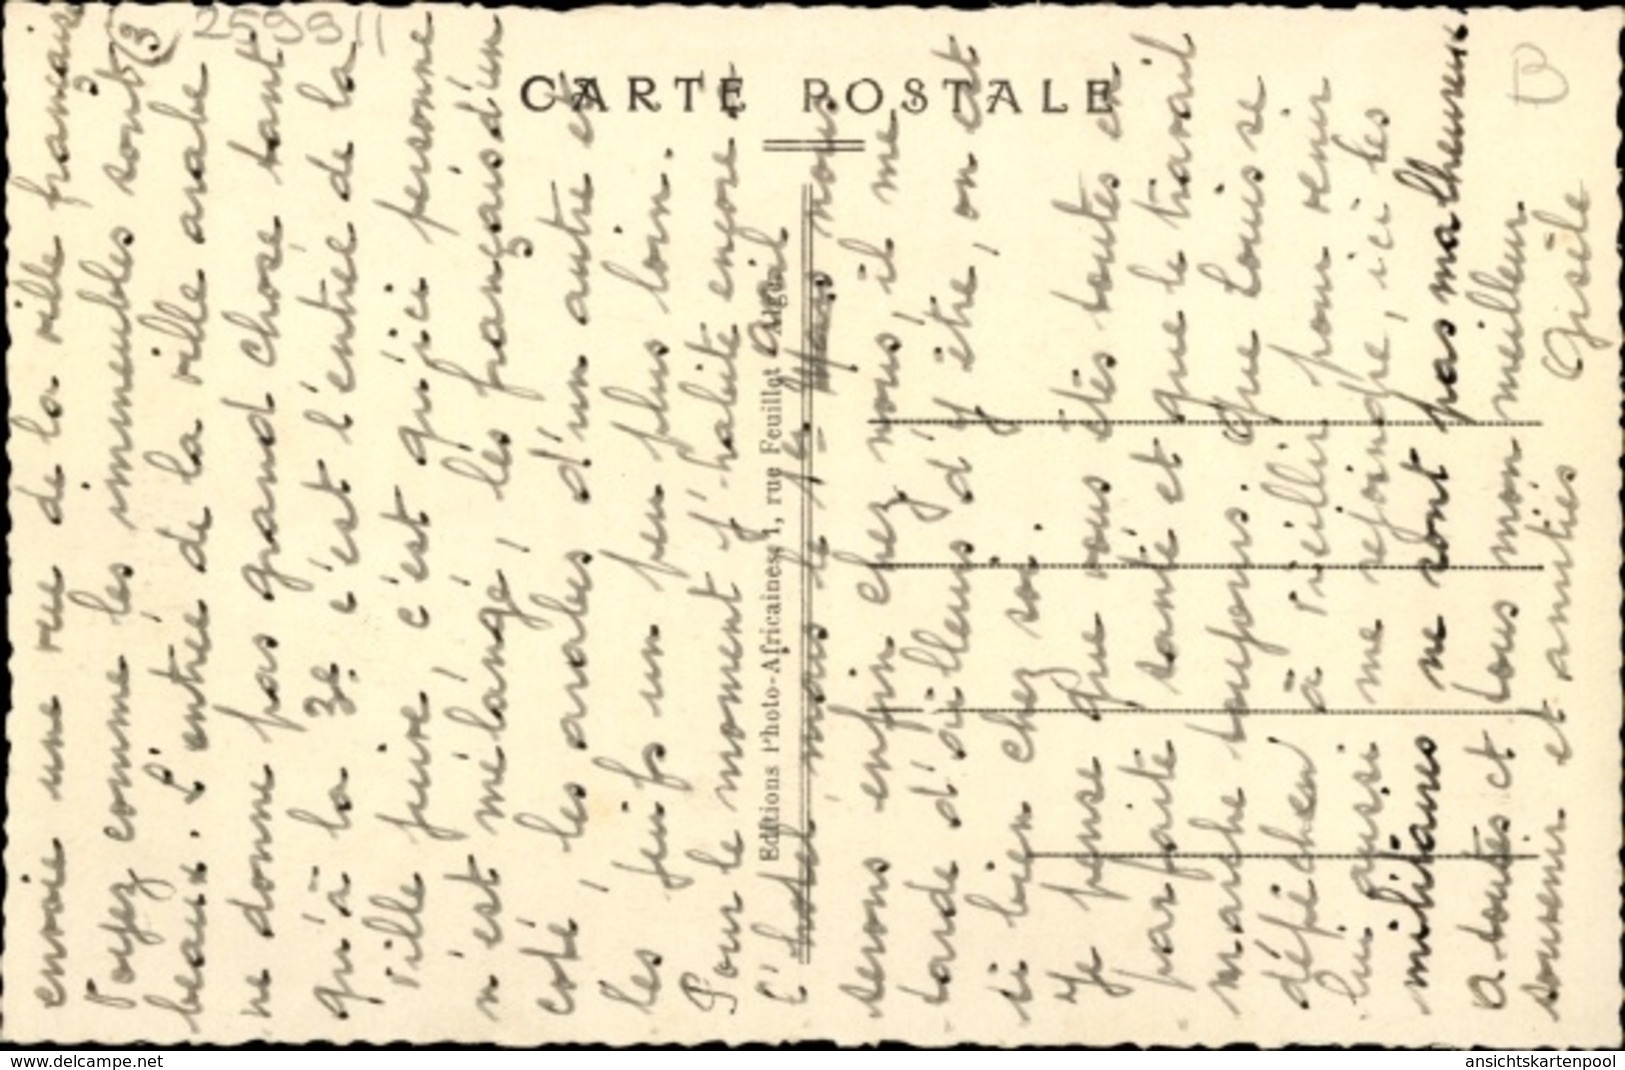 3
25991
CARTE POSTALE
Editions Photo-Africaines 1, rue Feuillet Alger
envoie une vue de la ville française
Voyez comme les immeubles sont
beaux. L'entrée de la ville arabe
ne donne pas grand chose tant
qu'à la 3e c'est l'entrée de la
ville juive, c'est qu'ici personne
n'est mélangé, les français d'un
coté, les arabes d'un autre et
les juifs un peu plus loin.
Pour le moment j'habite encore à
l'hotel mais le nous
serons enfin chez nous, il me
tarde d'ailleurs d'y être, on est
si bien chez soi.
Je pense que vous êtes toutes en
parfaite santé et que le travail
marche toujours. Que Louis se
dépêche à vieillir pour venir
lui aussi me rejoindre, ici les
militaires ne sont pas malheureux.
A toutes et tous mon meilleur
souvenir et amitiés Gisèle
www.delcampe.net
ansichtskartenpool